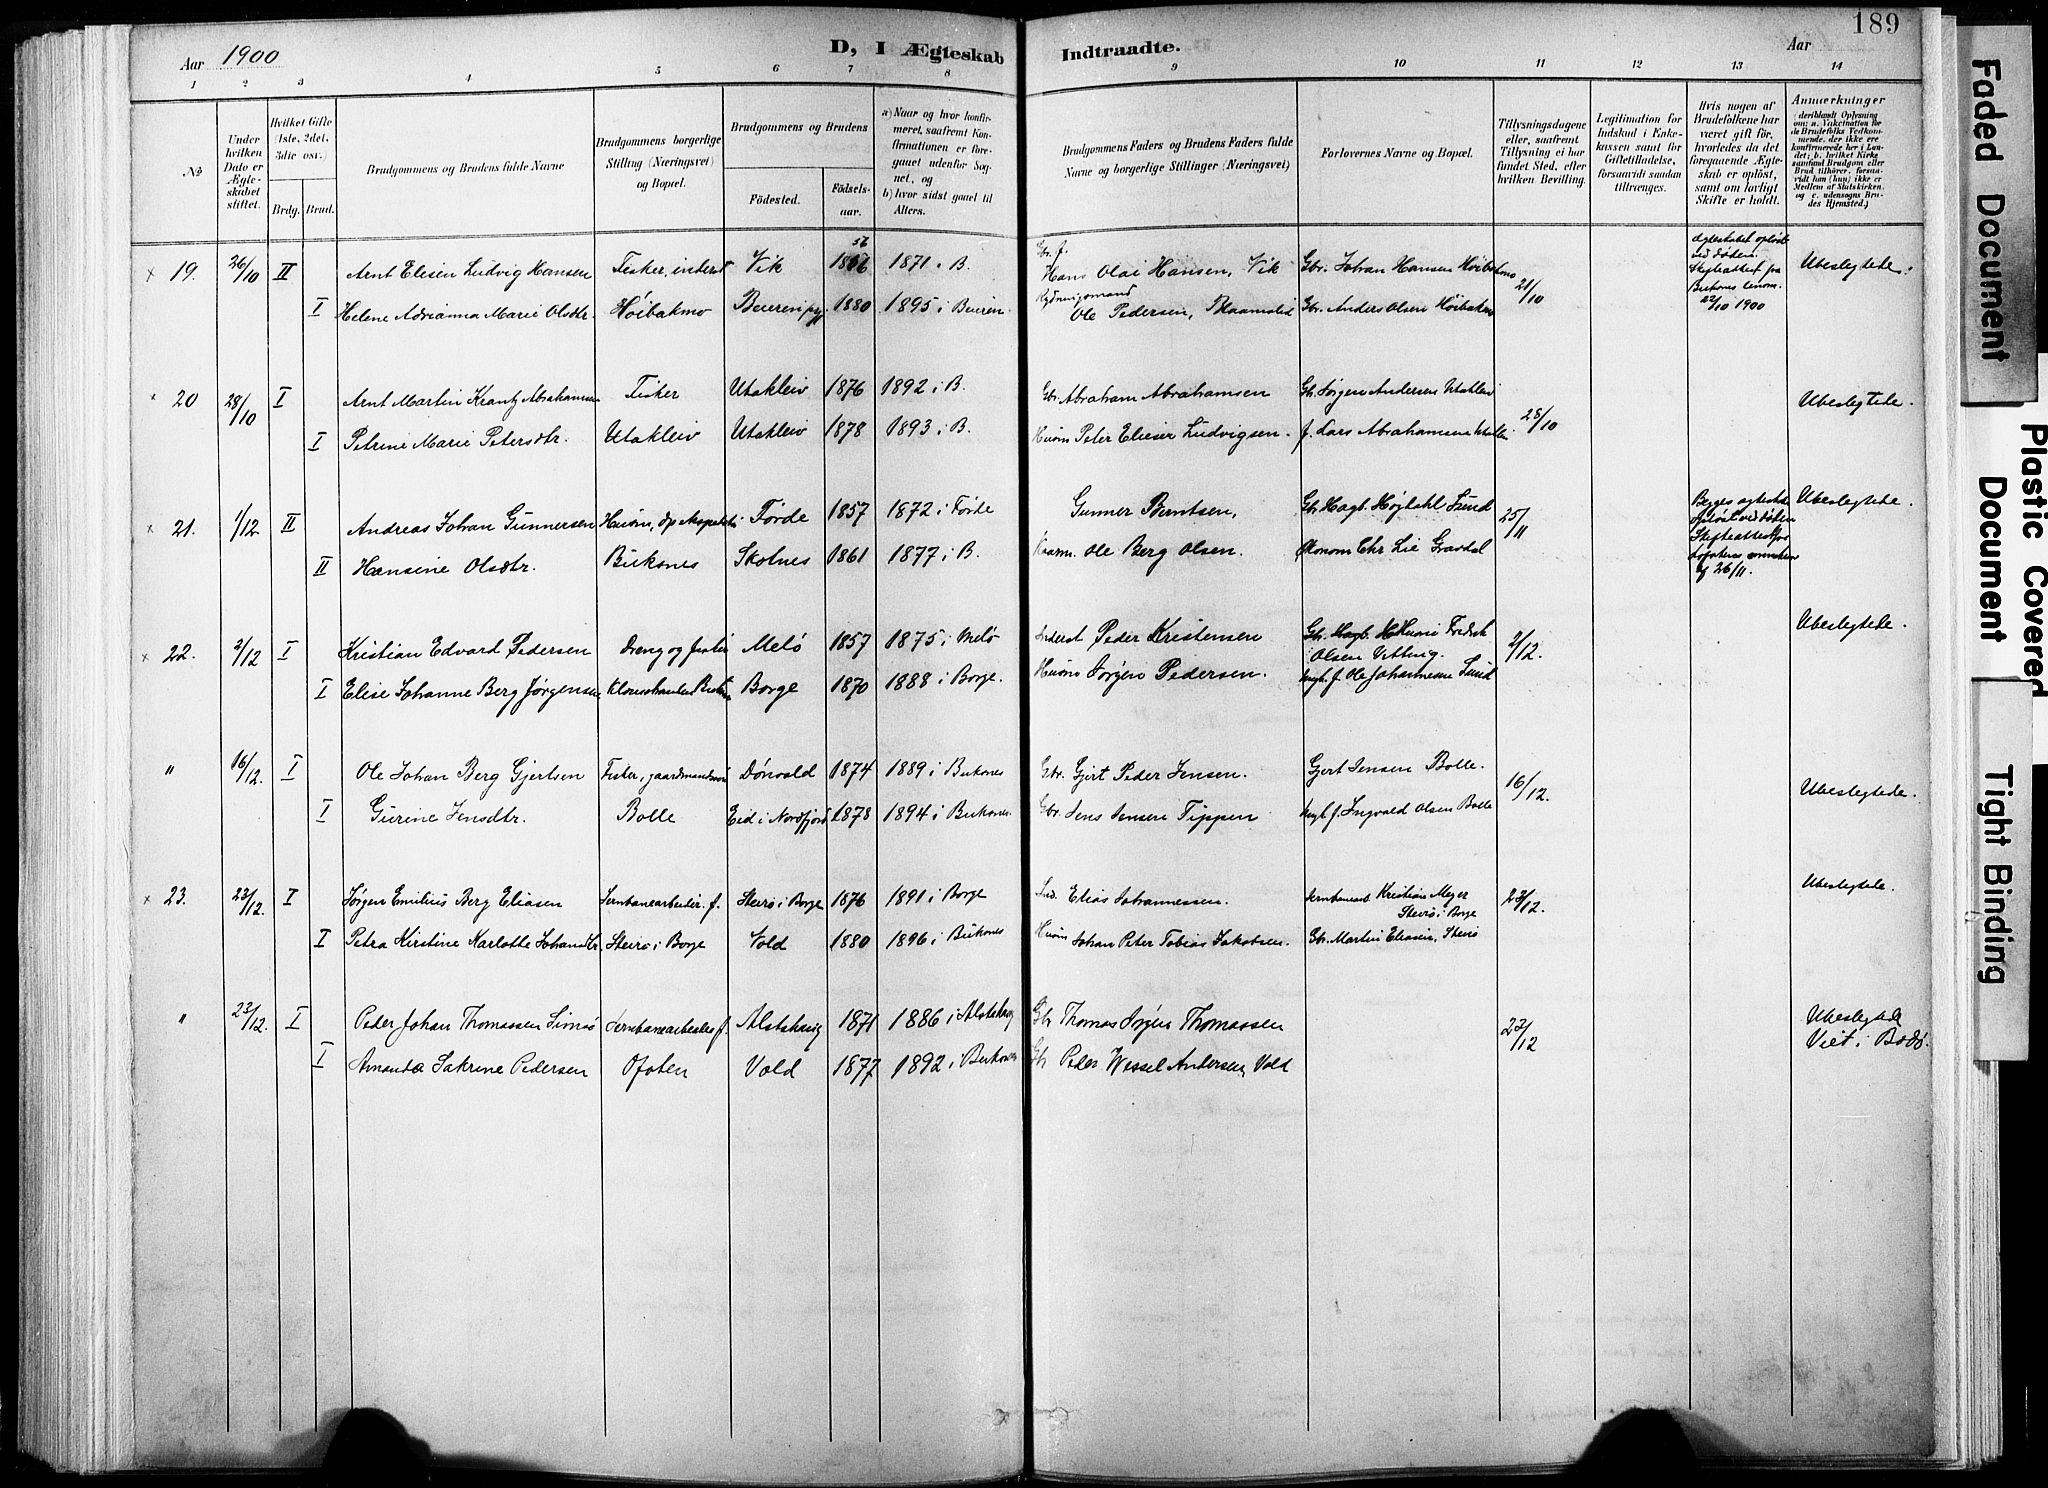 189
Aar 1900
D, I Ægteskab Indtraadte.
Aar
1 2 3 4 5 6 7 8 9 10 11 12 13 14
№
Under hvilken Dato er Ægteskabet stiftet.
Hvilket Gifte (1ste, 2det, 3die osv.)
Brdg. Brud.
Brudgommens og Brudens fulde Navne
Brudgommens borgerlige Stilling (Næringsvei) og Bopæl.
Brudgommens og Brudens
Födested.
Födselsaar.
a) Naar og hvor konfirmeret, saafremt Konfirmationen er foregaaet udenfor Sognet, og
b) hvor sidst gaaet til Alters.
Brudgommens Faders og Brudens Faders fulde Navne og borgerlige Stillinger (Næringsvei)
Forlovernes Navne og Bopæl.
Tillysningsdagene eller, saafremt Tillysning ei har fundet Sted, efter hvilken Bevilling.
Legitimation for Indskud i Enkekassen samt for Giftetilladelse, forsaavidt saadan tiltrænges.
Hvis nogen af Brudefolkene har været gift för, hvorledes da det foregaaende Ægteskab er oplöst, samt om lovligt Skifte er holdt.
Anmærkninger (deriblandt Oplysning om: a. Vakcination for de Brudefolks Vedkommende, der ikke ere konfirmerede her i Landet; b. hvilket Kirkesamfund Brudgom eller Brud tilhörer, forsaavidt han (hun) ikke er Medlem af Statskirken, og c. udensogns Brudes Hjemsted.)
× 19. 26/10 II Arnt Elisen Ludvig Hansen Fisker, inderst Vik 1856 1871 i B. Gbr. f. Hans Olai Hansen, Vik Gbr. Johan Hansen Höibakmo 21/10 Ægteskabet oplöst ved döden. Skifteattest fra Buksnes lensm. 22/10 1900 Ubeslegtede.
I Helene Adrianna Marie Olsdtr. Höibakmo Beieren 1880 1895 i Beieren. Rydningsmand Ole Pedersen, Gbr. Anders Olsen Höibakmo
20 28/10 I Arnt Martin Krantz Abrahamsen Fisker Utakleiv 1876 1892 i B. Gbr. Abraham Abrahamsen Gbr. Jörgen Andersen Utakleiv 28/10 Ubeslegtede.
I Petrine Marie Petersdtr. Utakleiv Utakleiv 1878 1893 i B. Husm Peter Elieser Ludvigsen. f. Lars Abrahamsen Utakleiv
× 21. 1/12 II Andreas Johan Gunnersen Husm, Förde 1857 1872 i Förde Gunner Berntsen, Gbr. Hagb. Högdahl Sund 25/11 Begges ægteskab oplöst ved döden Skifteattest fra af 26/11. Ubeslegtede.
II Hansine Olsdtr. Buksnes Skotnes 1861 1877 i B. Ole Berg Olsen. Ökonom Chr Lie Gravdal
× 22. 2/12 I Kristian Edvard Pedersen Dreng og fisker Melö 1857 1875 i Melö Inderst Peder Kristensen Fredrik Olsen Vetting. 2/12. Ubeslegtede.
I Elise Johanne Berg Jörgensen Borge 1870 1888 i Borge. Husm Jörgen Pedersen. f. Ole Johannesen Sund
" 16/12. I Ole Johan Berg Gjertsen Fisker, gaardmandssön Dönvald 1874 1889 i Buksnes Gbr. Gjert Peder Jensen. Gjert Jensen Bolle. 16/12. Ubeslegtede.
I Gurine Jensdtr. Bolle Eid i Nordfjord 1878 1894 i Buksnes. Gbr. Jens Jensen Tippen Ungk. f. Ingvald Olsen Bolle
× 23. 23/12. I Jörgen Emilius Berg Eliasen Jernbanearbeider. f. Steirö i Borge 1876 1891 i Borge Ind. Elias Johannessen. Jernbanearb Kristian Meyer Steirö i Borge 23/12. Ubeslegtede.
I Petra Kirstine Karlotte Johandtr Steirö i Borge Vold 1880 1896 i Buksnes Husm Johan Peter Tobias Jakobsen. Gbr. Martin Eliasen, Steirö
" 23/12. I Peder Johan Thomassen Simsö Jernbanearbeider f. Alstahaug 1871 1886 i Alstahaug Gbr Thomas Thomassen 23/12 Ubeslegtede Viet i Bodö.
I Amanda Sakrine Pedersen Ofoten Vold 1877 1892 i Buksnes Gbr Peder Wessel Andersen, Vold
Faded Document
Plastic Covered Document
Tight Binding